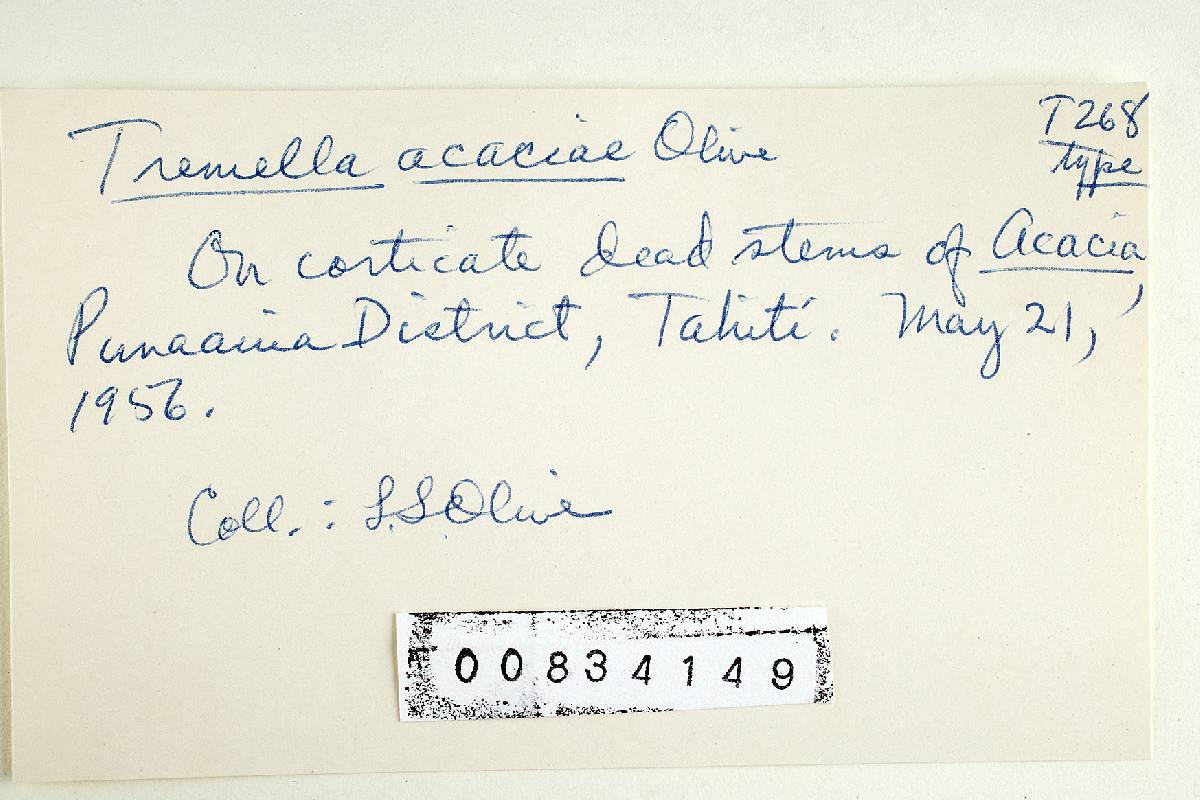 T268
type
Tremella acaciae Olive
On corticate dead stems of Acacia,
Punaauia District, Tahiti. May 21,
1956.
Coll.: L.S. Olive
00834149